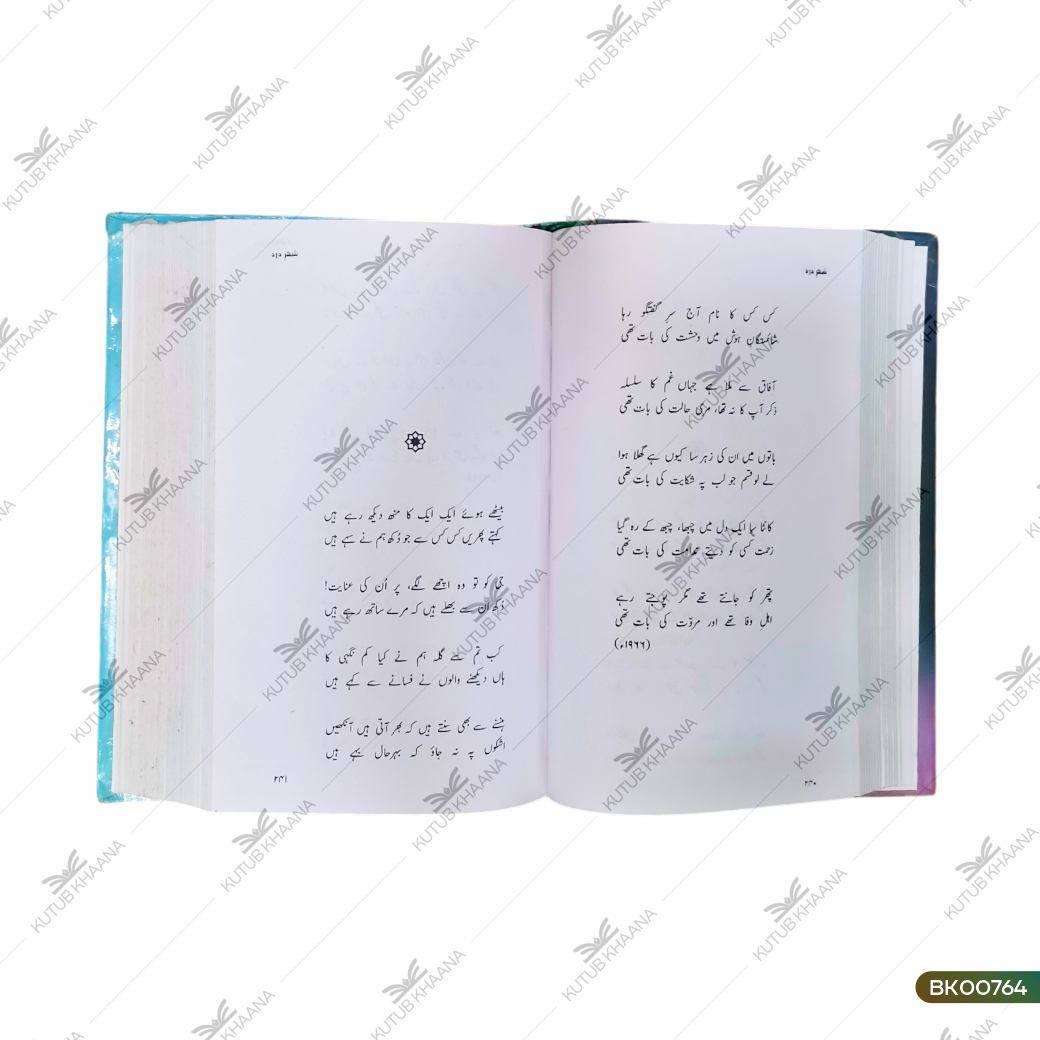 شہرِ درد
کس کس کا نام آج سرِ گفتگو رہا
شائستگانِ ہوش میں وحشت کی بات تھی
آفاق سے ملا ہے جہاں غم کا سلسلہ
ذکر آپ کا نہ تھا، مری حالت کی بات تھی
باتوں میں ان کی زہر سا کیوں ہے گھلا ہوا
لے لو قسم جو لب پہ شکایت کی بات تھی
کانٹا سا ایک دل میں چبھا، چبھ کے رہ گیا
زحمت کسی کو دیتے ندامت کی بات تھی
پتھر کو جانتے تھے مگر پوجتے رہے
اہلِ وفا تھے اور مروّت کی بات تھی
(۱۹۶۶ء)
۲۴۰
شہرِ درد
بیٹھے ہوئے ایک ایک کا منھ دیکھ رہے ہیں
کہتے پھریں کس کس سے جو دُکھ ہم نے سہے ہیں
جی کو تو وہ اچھے لگے، پر اُن کی عنایت!
دُکھ اُن سے بھلے ہیں کہ مرے ساتھ رہے ہیں
کب تم سے گلہ ہم نے کیا کم نگہی کا
ہاں دیکھنے والوں نے فسانے سے کہے ہیں
ہنسنے سے بھی سنتے ہیں کہ بھر آتی ہیں آنکھیں
اشکوں پہ نہ جاؤ کہ بہرحال بہے ہیں
۲۴۱
KUTUB KHAANA
BK00764